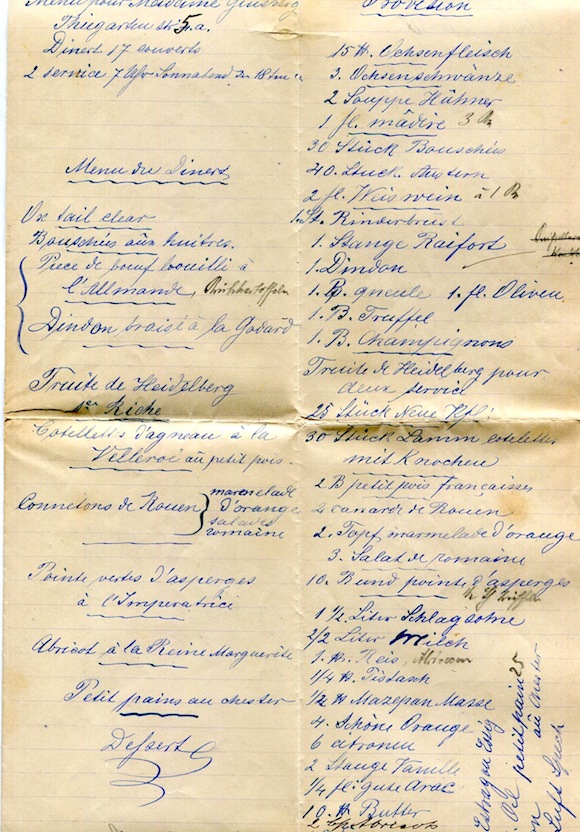 Menu pour Madame Ginsberg
Thiergarten str 5.a.
Diner 17 couverts
2 service 7 Uhr Sonnabend den 18ten
Menu du Diner
Ox tail clear
Bouchées aux huitres.
Piece de boeuf bouilli à
l'Allmande,
Dindon braisé à la Godard
Truite de Heidelberg
Riche
Cotelett's d'agneau à la
Villeroi au petit pois
Connetons de Rouen
marmelade
d'orange
salades
romaine
Pointe vertes d'asperges
à l'Imperatrice
Abricot à la Reine Marguerite
Petit pains au chester
Dessert
Provision
15 tt. Ochsenfleisch
3. Ochsenschwänze
2 Souppe Hühner
1 fl. madère 3
30 Stück Bouschées
40. Stück. Austern
2 fl. Weis wein à 1
Rinderbrust
1. Stange Raifort
1. Dindon
1. B. gueule 1. fl. Oliven
1. B. Truffel
1. B. Champignons
Truite de Heidelberg pour
deux service
25 Stück Neue
30 Stück Lamm cotelettes
mit Knochen
2 B petit pois Françaises
2 canard de Rouen
2. Topf marmelade d'orange
3. Salat de romaine
10. Bund pointe d'asperges
1 1/2 Liter Schlagsahne
2/2 Liter Milch
1. tt. Reis,
1/4 tt Pistasch
1/2 tt Mazepan Masse
4. Schöne Orange
6 citronen
2 Stange Vanille
1/4 fl. gute Arac
10. tt Butter
Estragon Essig
petit pain 25
au Chester